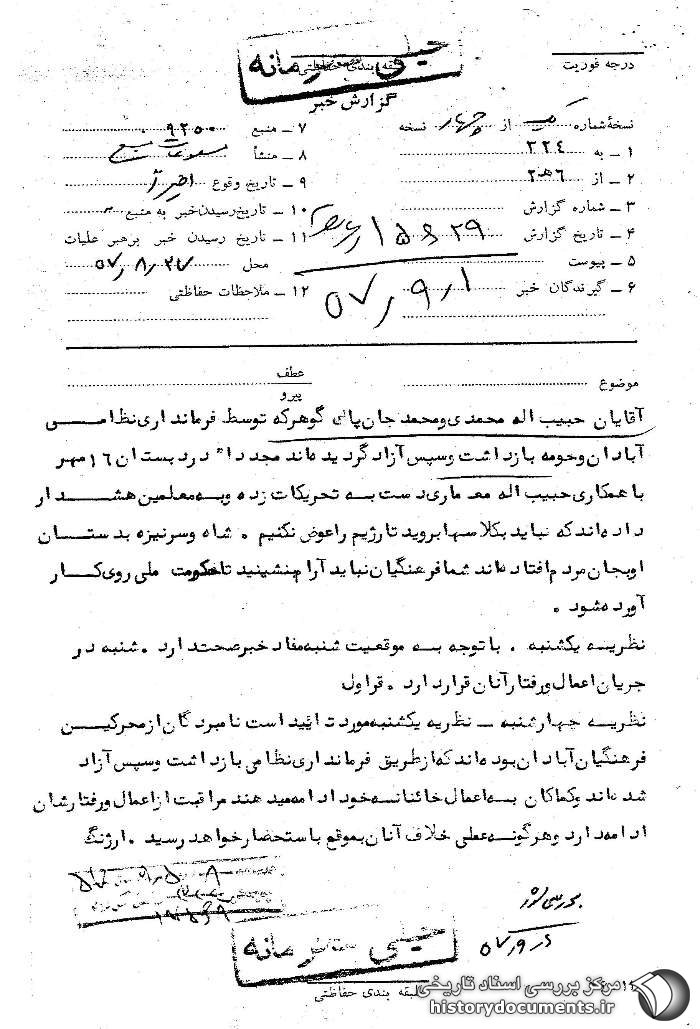 خیلی محرمانه
طبقه بندی حفاظتی
درجه فوریت
گزارش خبر
نسخهٔ شماره یک از چهار نسخه
۱ ـ به ۳۲۴
۲ ـ از ۶هـ۲
۳ ـ شماره گزارش
۴ ـ تاریخ گزارش ۱۵۶۲۹
۵ ـ پیوست
۶ ـ گیرندگان خبر ۵۷٫۹٫۱
۷ ـ منبع ۹۲۵۰
۸ ـ منشأ مسموعات منبع
۹ ـ تاریخ وقوع اخیراً
۱۰ ـ تاریخ رسیدن خبر به منبع ـ
۱۱ ـ تاریخ رسیدن خبر برهبر عملیات
محل ۵۷٫۸٫۲۷
۱۲ ـ ملاحظات حفاظتی
موضوع
عطف
پیرو
آقایان حبیب اله محمدی و محمد جان پالی گوهر که توسط فرمانداری نظامی
آبادان و حومه بازداشت و سپس آزاد گردیده اند مجدداً در دبستان ۱۶ مهر
با همکاری حبیب اله معماری دست به تحریکات زده و به معلمین هشدار
داده اند که نباید بکلاسها بروید تا رژیم را عوض نکنیم . شاه و سرنیزه بدستان
او بجان مردم افتاده اند شما فرهنگیان نباید آرام بنشینید تا حکومت ملی روی کار
آورده شود .
نظریه یکشنبه . با توجه به موقعیت شنبه مفاد خبر صحت دارد . شنبه در
جریان اعمال و رفتار آنان قرار دارد . قراول
نظریه چهارشنبه ــ نظریه یکشنبه مورد تائید است نامبردگان از محرکین
فرهنگیان آبادان بوده اند که از طریق فرمانداری نظامی بازداشت و سپس آزاد
شده اند و کماکان به اعمال خائنانه خود ادامه میدهند مراقبت از اعمال و رفتارشان
ادامه دارد و هرگونه عملی خلاف آنان بموقع باستحضار خواهد رسید . ارژنگ
خیلی محرمانه
طبقه بندی حفاظتی
مرکز بررسی اسناد تاریخی
historydocuments.ir